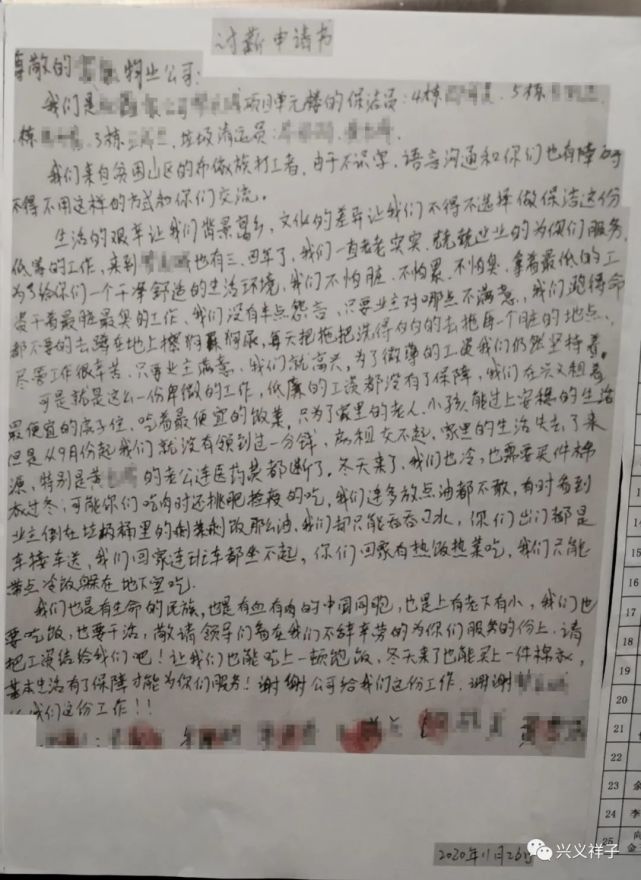 讨薪申请书
尊敬的 物业公司:
我们是 项目单元楼的保洁员: 4栋 5栋
栋 3栋 垃圾清运员:
我们来自贫困山区的布依族打工者, 由于不识字、语言沟通和你们也有障碍
不得不用这样的方式和你们交流。
生活的艰辛让我们背景离乡, 文化的差异让我们不得不选择做保洁这份
低等的工作, 来到 也有三、四年了, 我们一直老老实实、兢兢业业的为你们服务,
为了给你们一个干净舒适的生活环境, 我们不怕脏、不怕累、不怕臭, 拿着最低的工
资干着最脏最臭的工作、我们没有半点怨言, 只要业主对哪点不满意, 我们跑得命
都不要的去蹲在地上擦狗屎狗尿, 每天把拖把洗得白白的去拖每一个脏的地点、
尽管工作很辛苦、只要业主满意、我们就高兴, 为了微薄的工资我们仍然坚持着。
可是就是这么一份卑微的工作, 低廉的工资都没有了保障, 我们在兴义租着
最便宜的房子住、吃着最便宜的饭菜, 只为了家里的老人、小孩能过上安稳的生活
但是从9月份起我们就没有领到过一分钱、房租交不起, 家里的生活失去了来
源、特别是黄 的老公连医药费都断了。冬天来了、我们也冷, 也需要买件棉
衣过冬, 可能你们吃肉时还挑肥捡瘦的吃, 我们连多放点油都不敢, 有时看到
业主倒在垃圾桶里的剩菜剩饭那么油, 我们却只能吞吞口水, 你们出门都是
车接车送, 我们回家连班车都坐不起, 你们回家有热饭热菜吃, 我们只能
带点冷饭躲在地下室吃.
我们也是有生命的民族, 也是有血有肉的中国同胞, 也是上有老下有小, 我们也
要吃饭, 也要干活, 敬请领导们看在我们不辞辛劳的为你们服务的份上, 请
把工资结给我们吧! 让我们也能吃上一顿饱饭, 冬天来了也能买上一件棉衣,
基本生活有了保障才能为你们服务! 谢谢公司给我们这份工作, 谢谢
我们这份工作!!
2020年11月26日
兴义祥子
14
15
16
17
18
19
20
21
22
23
24 李
25